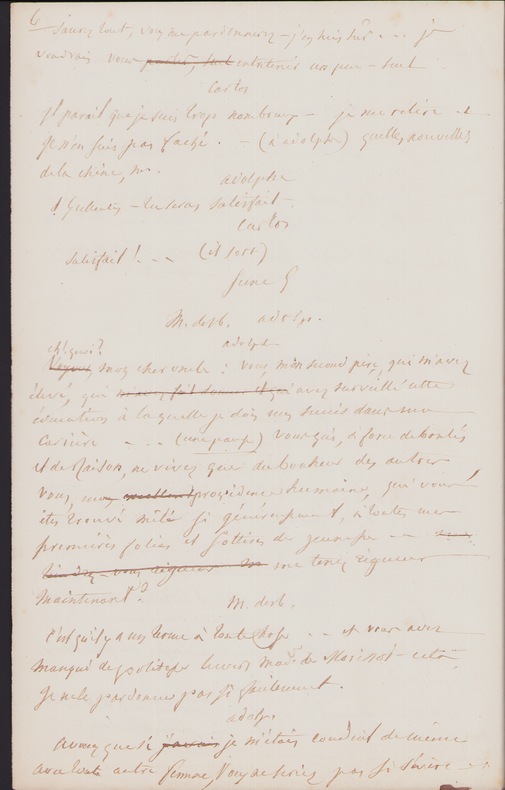 6
vous me pardonnerez - j'en suis sûr ... je
voudrais vous parler, seul entretenir un peu - seul
Carlos
Il parait que je suis trop nombreux - je me retire
Je n'en suis pas faché. - (à adolphe) quelles nouvelles
de la chine,
adolphe
- tu seras satisfait.
Carlos
Satisfait ! - - (il sort)
M. derb. adolp.
adolph
Eh quoi ?
mon cher oncle : vous mon second père, qui m'avez
élevé, qui avez surveillé cette
éducation à laquelle je dois mes succès dans ma
carière - - - (une pause) vous qui, à force de bontés
et de raison, ne vivez que du bonheur des autres
vous, mon excellent providence humaine, qui vous
êtes trouvé mêlé si généreusement, à toutes mes
premières folies et sottises de jeunesse - -
tiendrez-vous rigueur me tenez rigueur
maintenant ?
M. derb.
C'est qu'il y a un terme à toute chose - - et vous avez
manqué de politesse envers mad. de - cela,
Je ne le pardonne pas si facilement.
adolp.
avouez que si j'avais je m'étais conduit de même
avec toute autre femme, vous ne seriez pas si sévère -